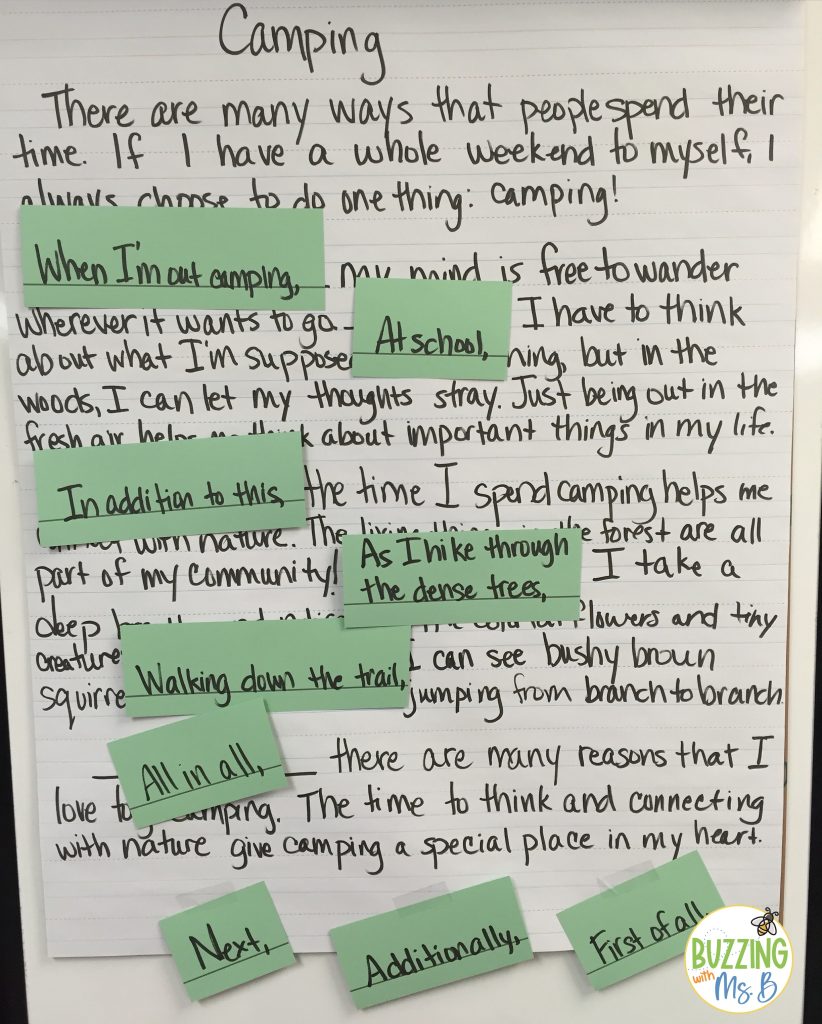 Camping
There are many ways that people spend their
time. If I have a whole weekend to myself, I
always choose to do one thing: camping!
When I'm out camping, my mind is free to wander
wherever it wants to go. At school, I have to think
about what I'm suppose ning, but in the
woods, I can let my thoughts stray. Just being out in the
fresh air helps me think about important things in my life.
In addition to this, the time I spend camping helps me
with nature. The living things in the forest are all
part of my community! As I hike through
the dense trees, I take a
deep flowers and tiny
creature I can see bushy brown
squirre Walking down the trail, jumping from branch to branch
All in all, there are many reasons that I
love to go camping. The time to think and connecting
with nature give camping a special place in my heart.
Next, Additionally, First of all,
BUZZING
with
Ms. B